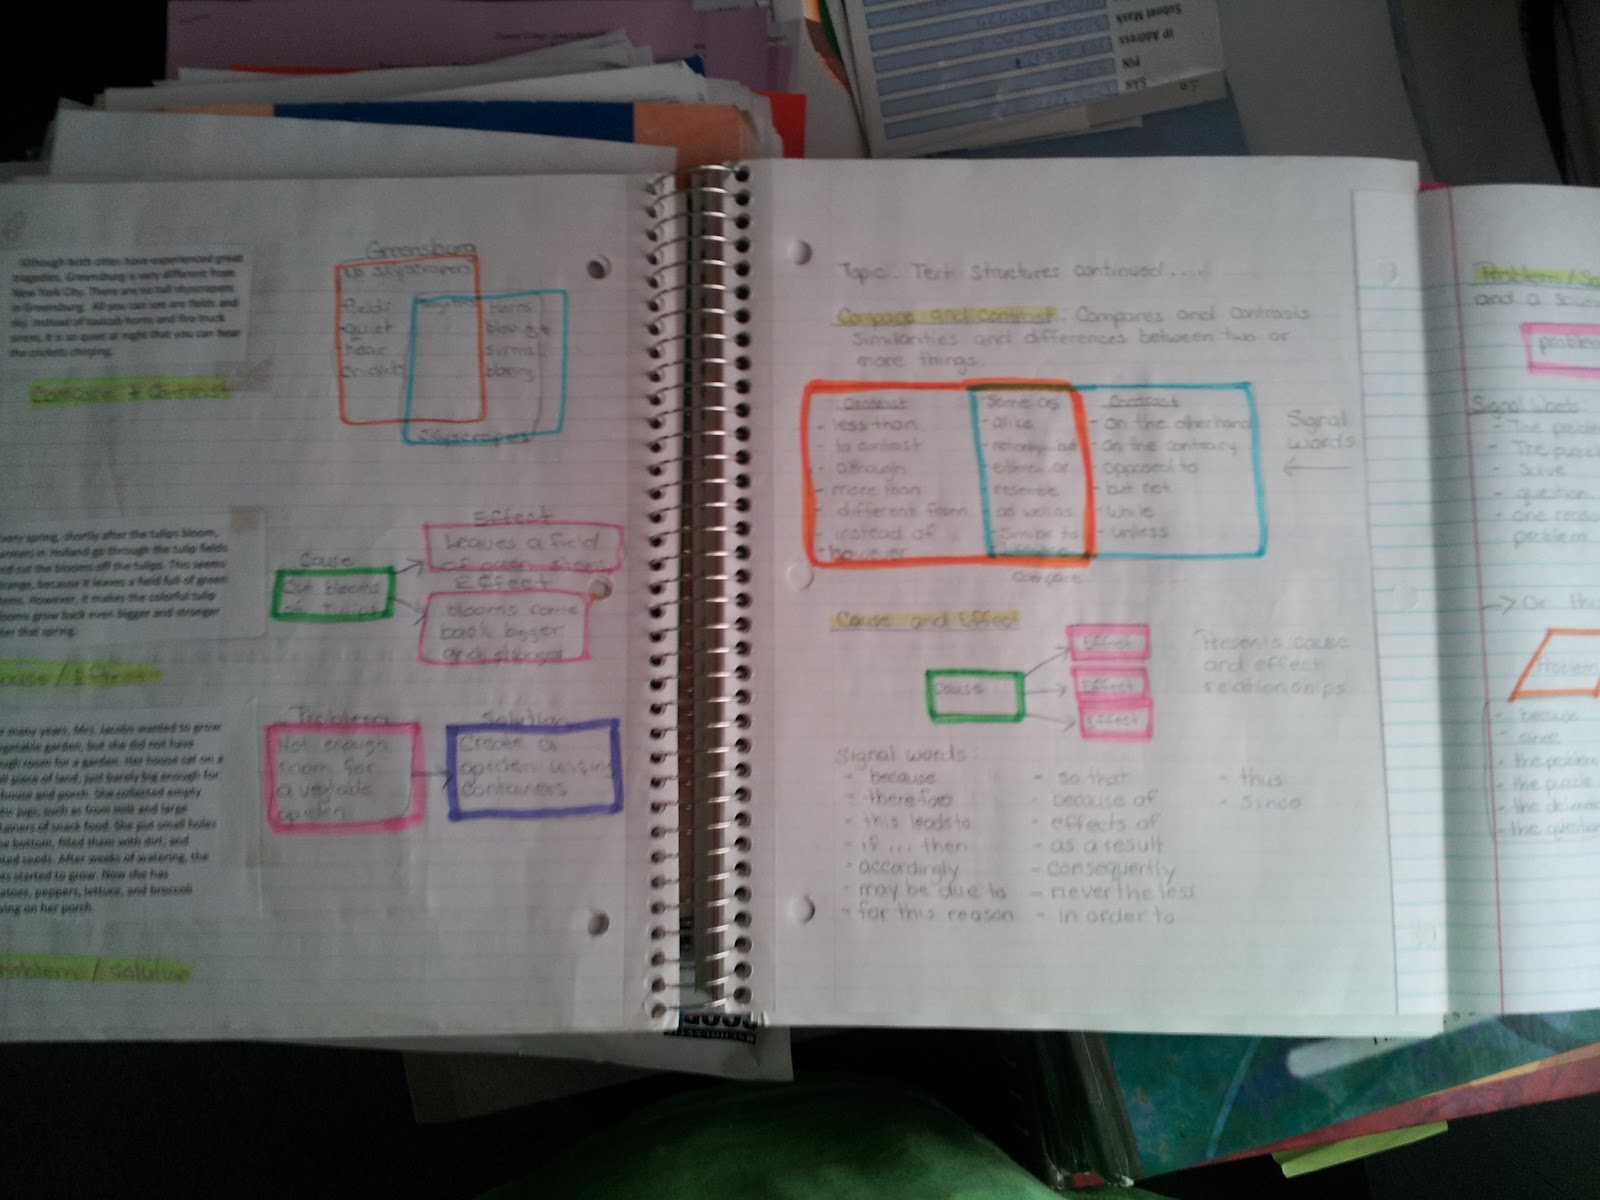 Although both cities have experienced great
tragedies, Greensburg is very different from
New York City. There are no tall skyscrapers
in Greensburg. All you can see are fields and
sky. Instead of taxicab horns and fire truck
sirens, it is so quiet at night that you can hear
the crickets chirping.
Compare & Contrast
Greensburg
No Skyscrapers
fields
quiet
hear
crickets
Horns
sirens
Skyscrapers
very spring, shortly after the tulips bloom,
armers in Holland go through the tulip fields
nd cut the blooms off the tulips. This seems
trange, because it leaves a field full of green
tems. However, it makes the colorful tulip
ooms grow back even bigger and stronger
ter that spring.
Cause / Effect
Cause
Cut blooms
of Tulips
Effect
Leaves a field
of green stems
Effect
blooms come
back bigger
and stronger
r many years, Mrs. Jacobs wanted to grow
egetable garden, but she did not have
ough room for a garden. Her house sat on a
ll piece of land, just barely big enough for
house and porch. She collected empty
tic jugs, such as from milk and large
tainers of snack food. She put small holes
he bottom, filled them with dirt, and
ted seeds. After weeks of watering, the
ts started to grow. Now she has
atoes, peppers, lettuce, and broccoli
wing on her porch.
Problem / Solution
Problem
Not enough
room for
a vegtable
garden
Solution
Create a
garden using
containers
Topic: Text Structures continued....
Compare and Contrast: Compares and contrasts
similarities and differences between two or
more things.
Contrast
- less than
- to contrast
- although
- more than
- different from
- instead of
- however
Same as
- alike
- not only, but
- either, or
resemble
- as well as
- Similar to
Compare
Contrast
- on the otherhand
- on the contrary
- opposed to
- but not
- while
- unless
Signal
words
Cause and Effect
Cause
Effect
Effect
Effect
Presents cause
and effect
relationships
Signal words:
- because
- therefore
- this leads to
- if ... then
- accordingly
- may be due to
- for this reason
- so that
- because of
- effects of
- as a result
- consequently
- nevertheless
- in order to
- thus
- since
Problem / So
and a
problem
Signal Words
- The proble
- The puzzl
- Solve
- question
- one reaso
problem
Or
Problem
- because
- since
- the problem
- the puzzle
- the
- the question
Subnet Mask
IP Address
PIN
SAN